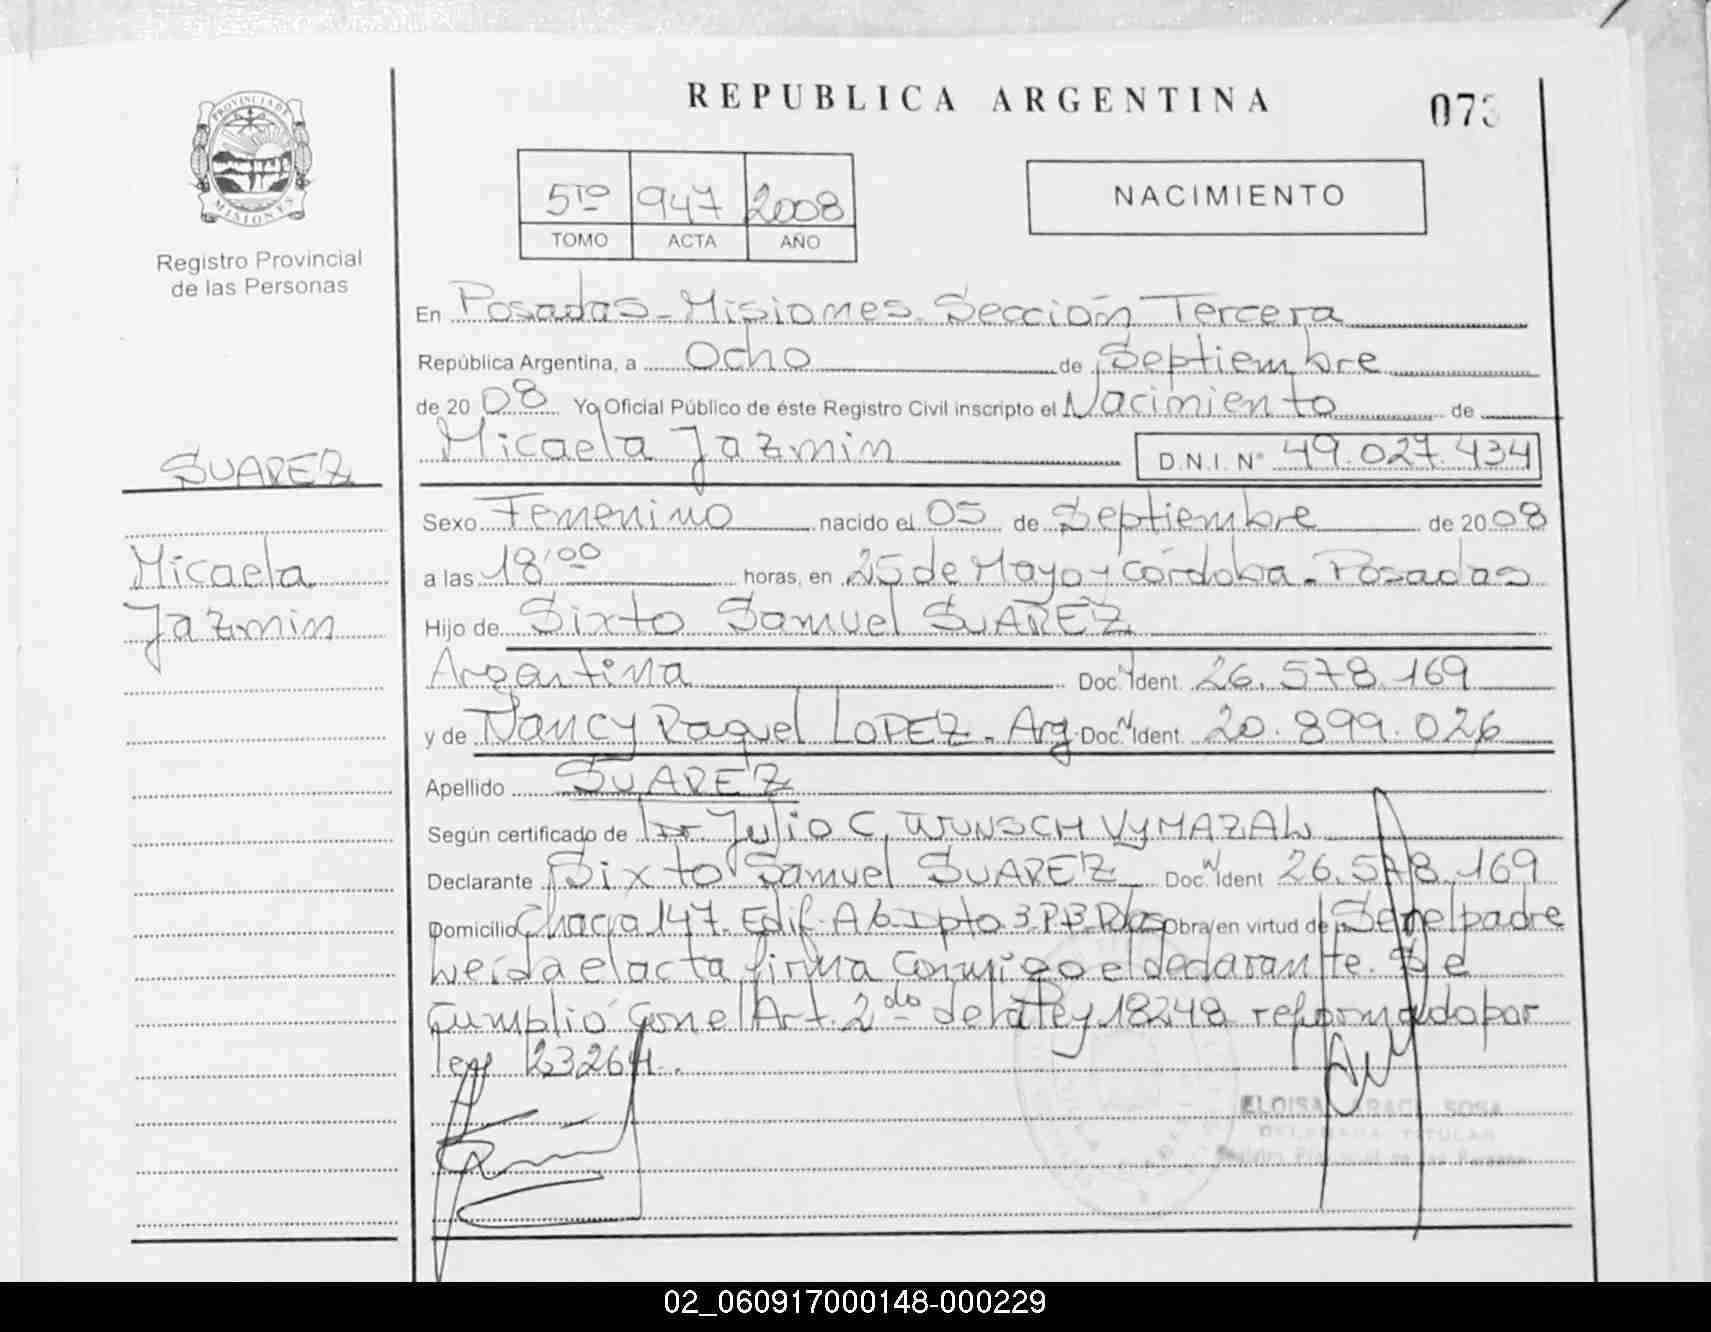 REPUBLICA ARGENTINA
073
PROVINCIA DE MISIONES
Registro Provincial
de las Personas
5TO 947 2008
TOMO ACTA AÑO
NACIMIENTO
En Posadas - Misiones - Sección Tercera
República Argentina, a Ocho de Septiembre
de 2008 Yo, Oficial Público de éste Registro Civil inscripto el Nacimiento de
Micaela Jazmin D.N.I. N° 49.027.434
SUAREZ
Micaela
Jazmin
Sexo Femenino nacido el 05 de Septiembre de 2008
a las 18,00 horas, en 25 de Mayo y Córdoba - Posadas
Hijo de Sixto Samuel SUAREZ
Argentina Doc. Ident. 26.578.169
y de Nancy Raquel LOPEZ - Arg. Doc. Ident. 20.899.026
Apellido SUAREZ
Según certificado de Dr Julio C. WUNSCH VYMAZAL
Declarante Sixto Samuel SUAREZ Doc. Ident 26.578.169
Domicilio Chacra 147 - Edif. A 6 - Dpto. 3 - P.B. Pdas Obra en virtud de Ser el padre
Leída el acta firma conmigo el declarante. Se
cumplió con el Art. 2do de la Ley 18248 reformado por
ley 23264.
ELOISA ARACI SOSA
DELEGADA TITULAR
Registro Provincial de las Personas
02_060917000148-000229